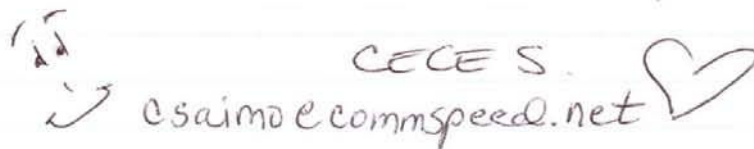 CECE S.
csaimo@commspeed.net